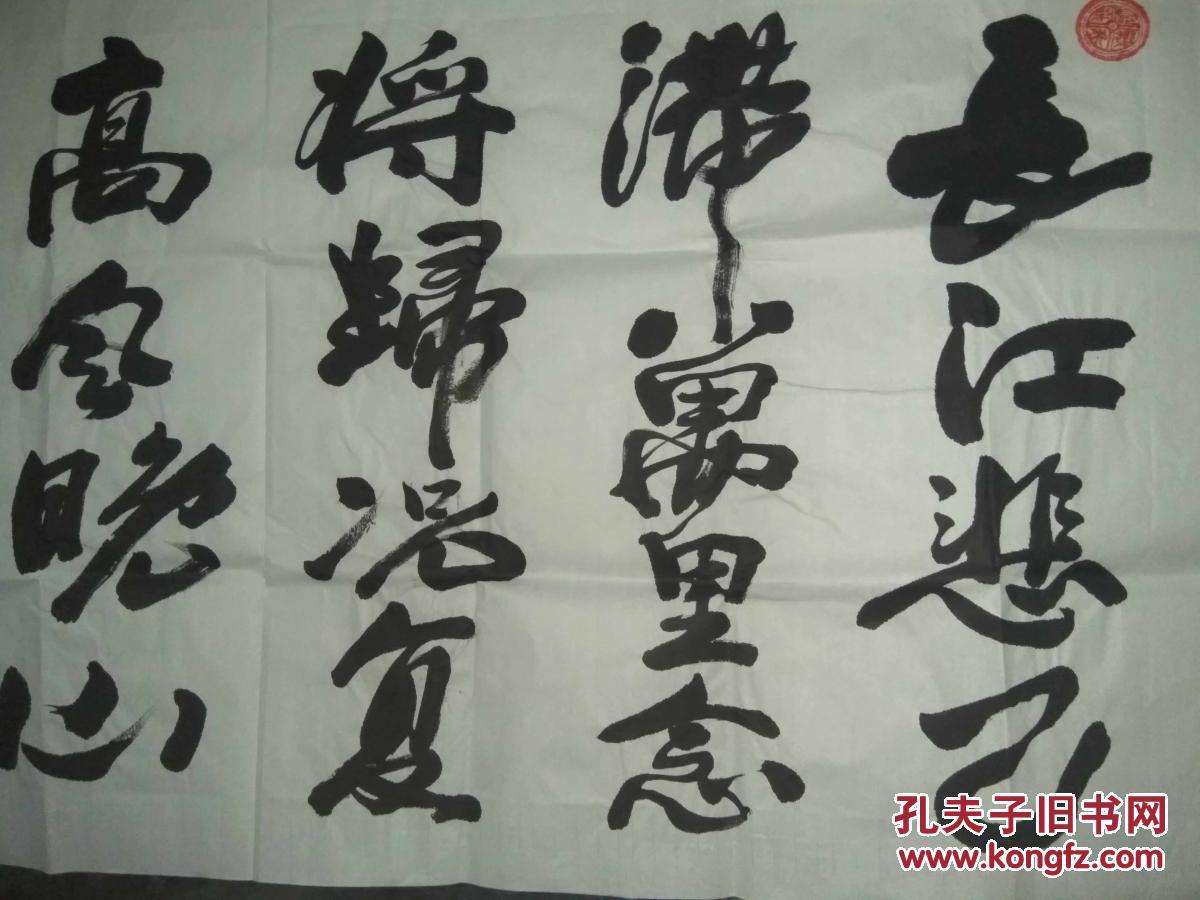 长江悲已
滞萬里念
将歸况复
高风晚山
孔夫子旧书网
www.kongfz.com